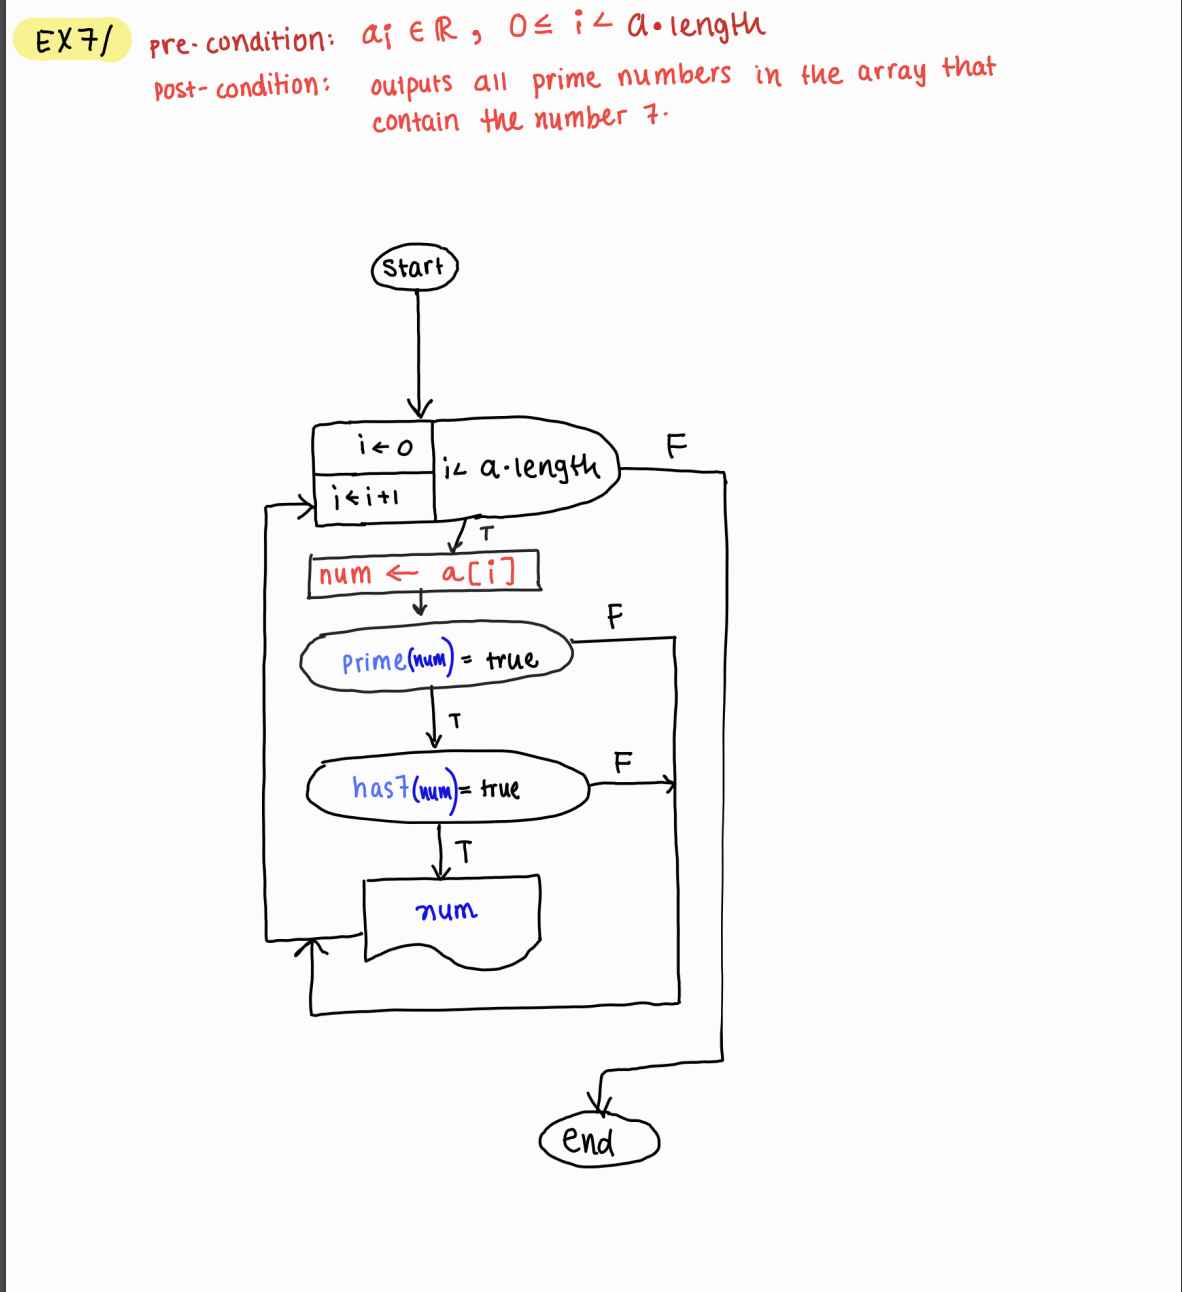 EX7/ pre-condition: ai ∈ ℝ, 0 ≤ i < a.length
Post-condition: outputs all prime numbers in the array that
contain the number 7.
Start
i ← 0
i ← i+1
i < a.length
F
T
num ← a[i]
F
Prime(num) = true
T
F
has7(num) = true
T
num
end